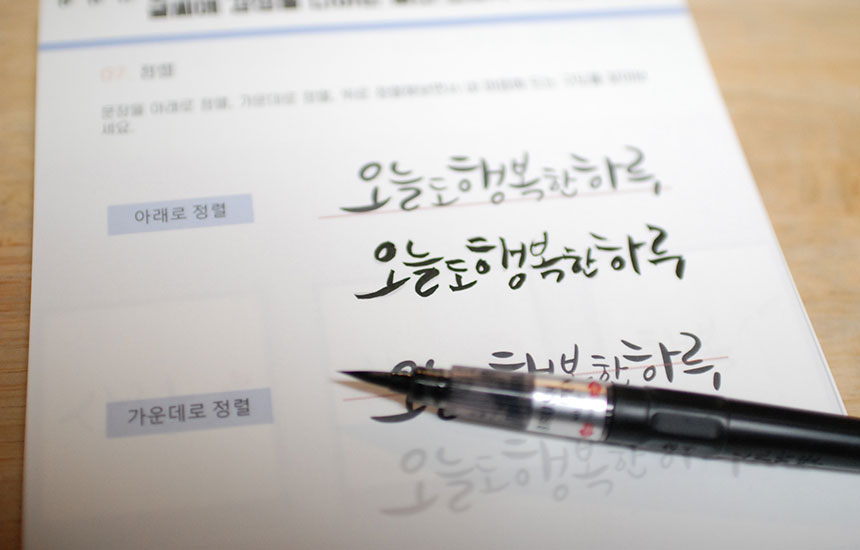 02. 정렬
문장을 아래로 정렬, 가운데로 정렬, 위로 정렬해보면서
세요.
오늘도행복한하루,
아래로 정렬
오늘도행복한하루
행복한하루,
가운데로 정렬
오늘도행복한하루